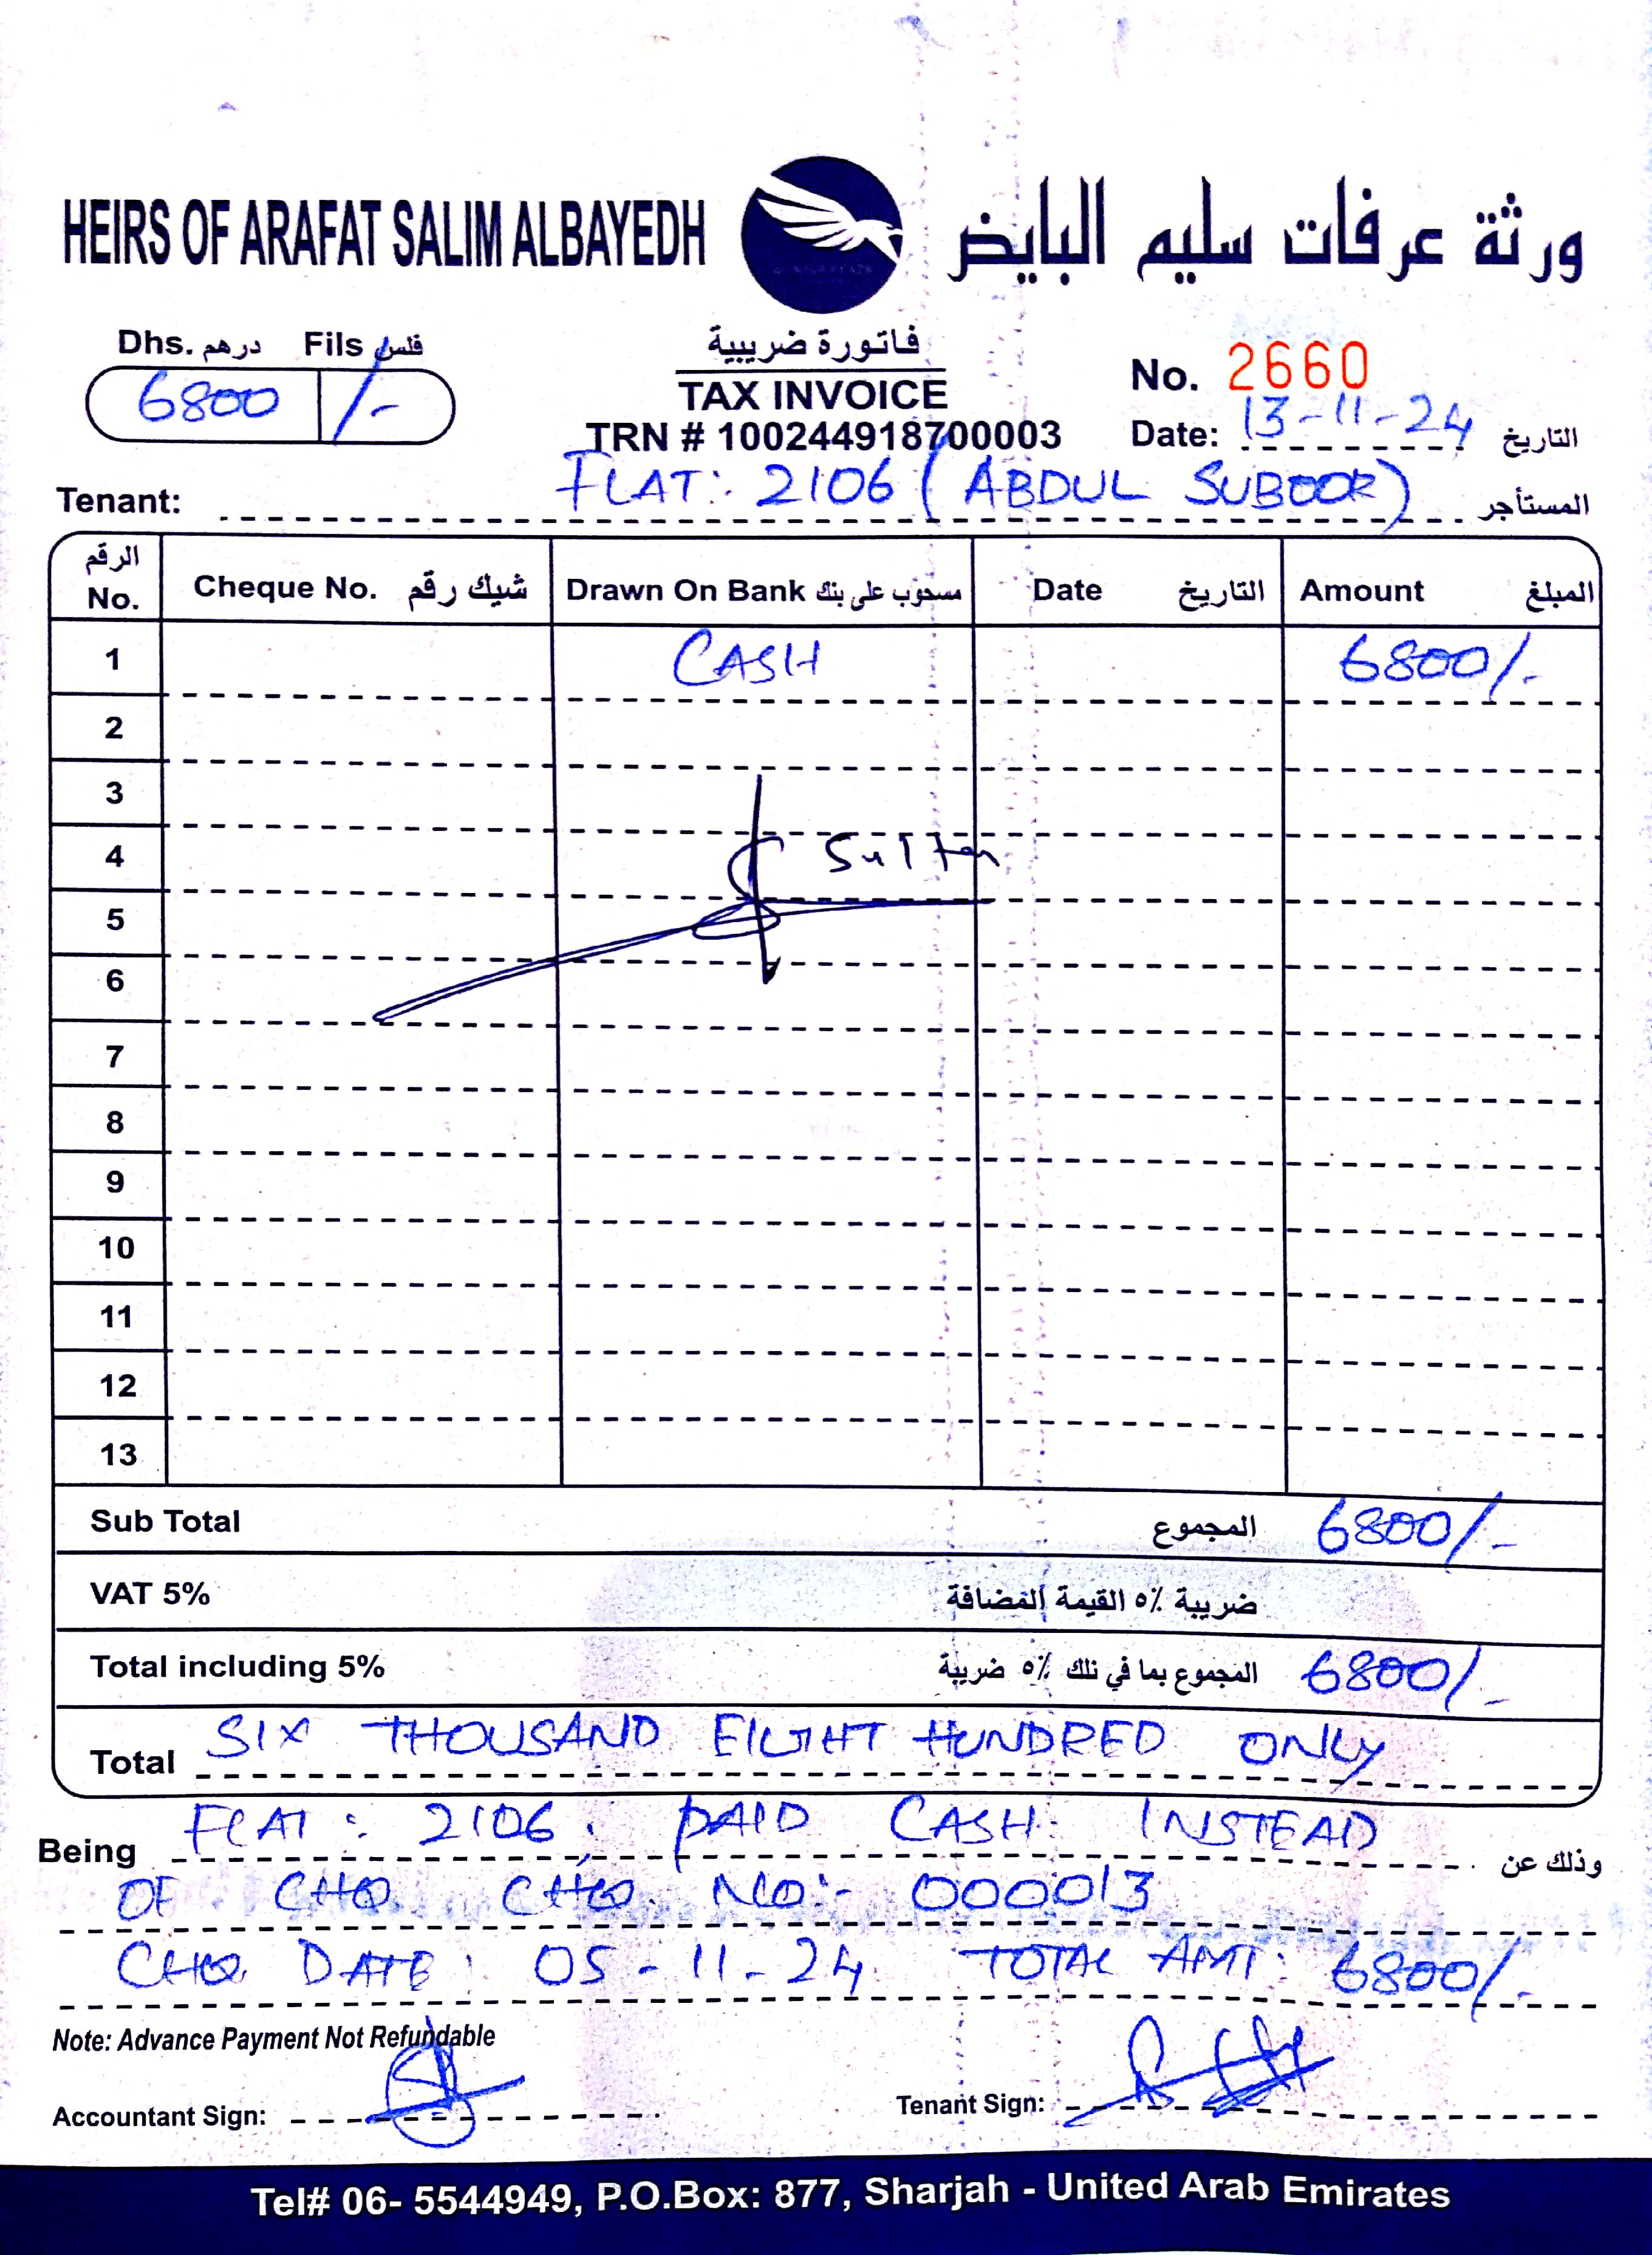 HEIRS OF ARAFAT SALIM ALBAYEDH ورثة عرفات سليم البايض
Dhs. درهم Fils فلس
6800 /-
فاتورة ضريبية
TAX INVOICE
TRN # 100244918700003
No. 2660
Date: 13-11-24 التاريخ
Tenant: FLAT: 2106 (ABDUL SUBOOR) المستأجر
الرقم No. Cheque No. شيك رقم Drawn On Bank مسحوب على بنك Date التاريخ Amount المبلغ
1 CASH 6800/-
2
3
4 Sultan
5
6
7
8
9
10
11
12
13
Sub Total المجموع 6800/-
VAT 5% ضريبة ٥٪ القيمة المضافة
Total including 5% المجموع بما في ذلك ٥٪ ضريبة 6800/-
Total SIX THOUSAND EIGHT HUNDRED ONLY
Being FLAT: 2106, PAID CASH INSTEAD وذلك عن
OF CHQ. CHQ. NO:- 000013
CHQ. DATE: 05-11-24 TOTAL AMT: 6800/-
Note: Advance Payment Not Refundable
Accountant Sign: Tenant Sign:
Tel# 06- 5544949, P.O.Box: 877, Sharjah - United Arab Emirates